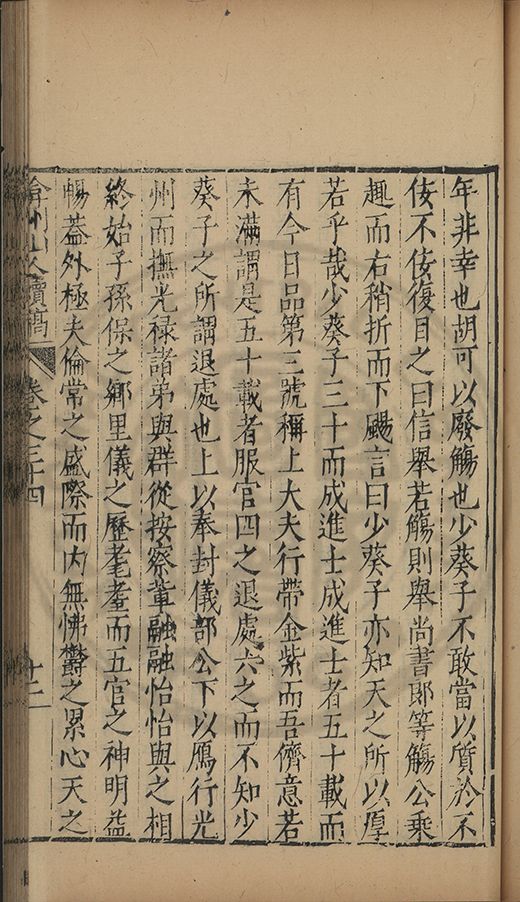 年非幸也胡可以廢觴也少葵子不敢當以質於不
佞不佞復目之曰信舉若觴則舉尚書郎等觴公乗
趣而右稍折而下颺言曰少葵子亦知天之所以厚
若乎哉少葵子三十而成進士成進士者五十載而
有今日品第三號稱上大夫行帶金紫而吾儕意若
未滿謂是五十載者服官四之退處六之而不知少
葵子之所謂退處也上以奉封儀部公下以鴈行光
州而撫光禄諸弟與群從按察軰融融怡怡與之相
終始子孫保之鄉里儀之歴耄耋而五官之神明益
暢葢外極夫倫常之盛際而内無怫鬱之累心天之
弇州山人續稿 卷之三十四 十二